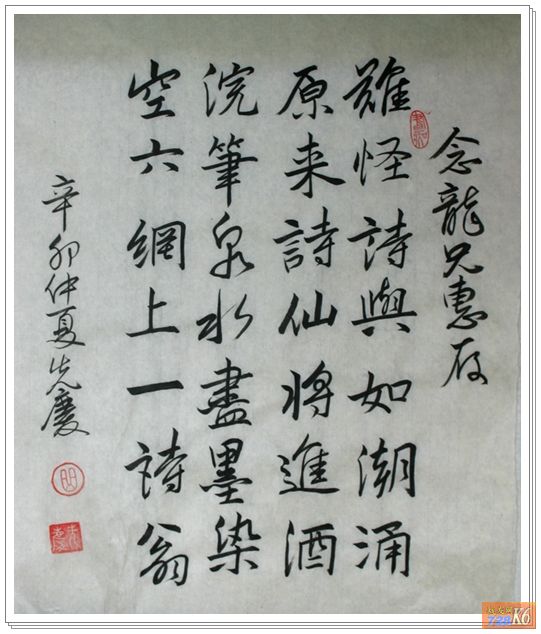 念龍兄惠存
難怪詩與如潮涌
原来詩仙將進酒
浣筆泉水盡墨染
空六網上一詩翁
辛卯仲夏先慶
728 K6